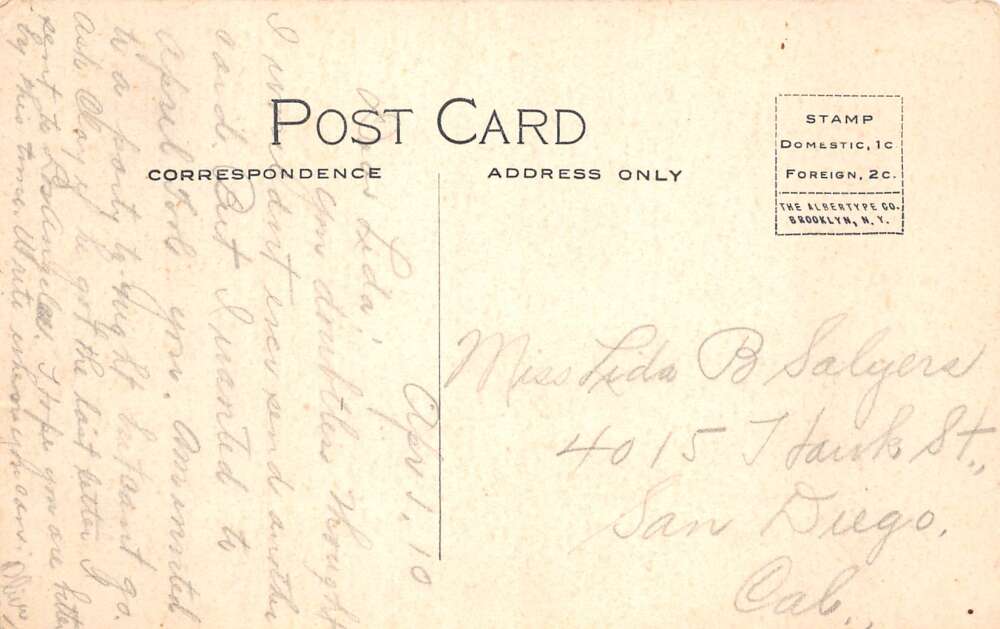 POST CARD
CORRESPONDENCE
ADDRESS ONLY
STAMP
DOMESTIC, 1C
FOREIGN, 2C.
THE ALBERTYPE CO.
BROOKLYN, N. Y.
Apr 1, 10
Miss Lida;
you doubtless thought
I would not ever send another
card. But I wanted to
April fools you. Am invited
to a party to-night but can't go.
Ask May if he got the last letter I
sent to Los Angeles. I hope you are better
by this time. Write when you can.
Miss Lida B Salyers
4015 Hawk St.,
San Diego,
Cal.,